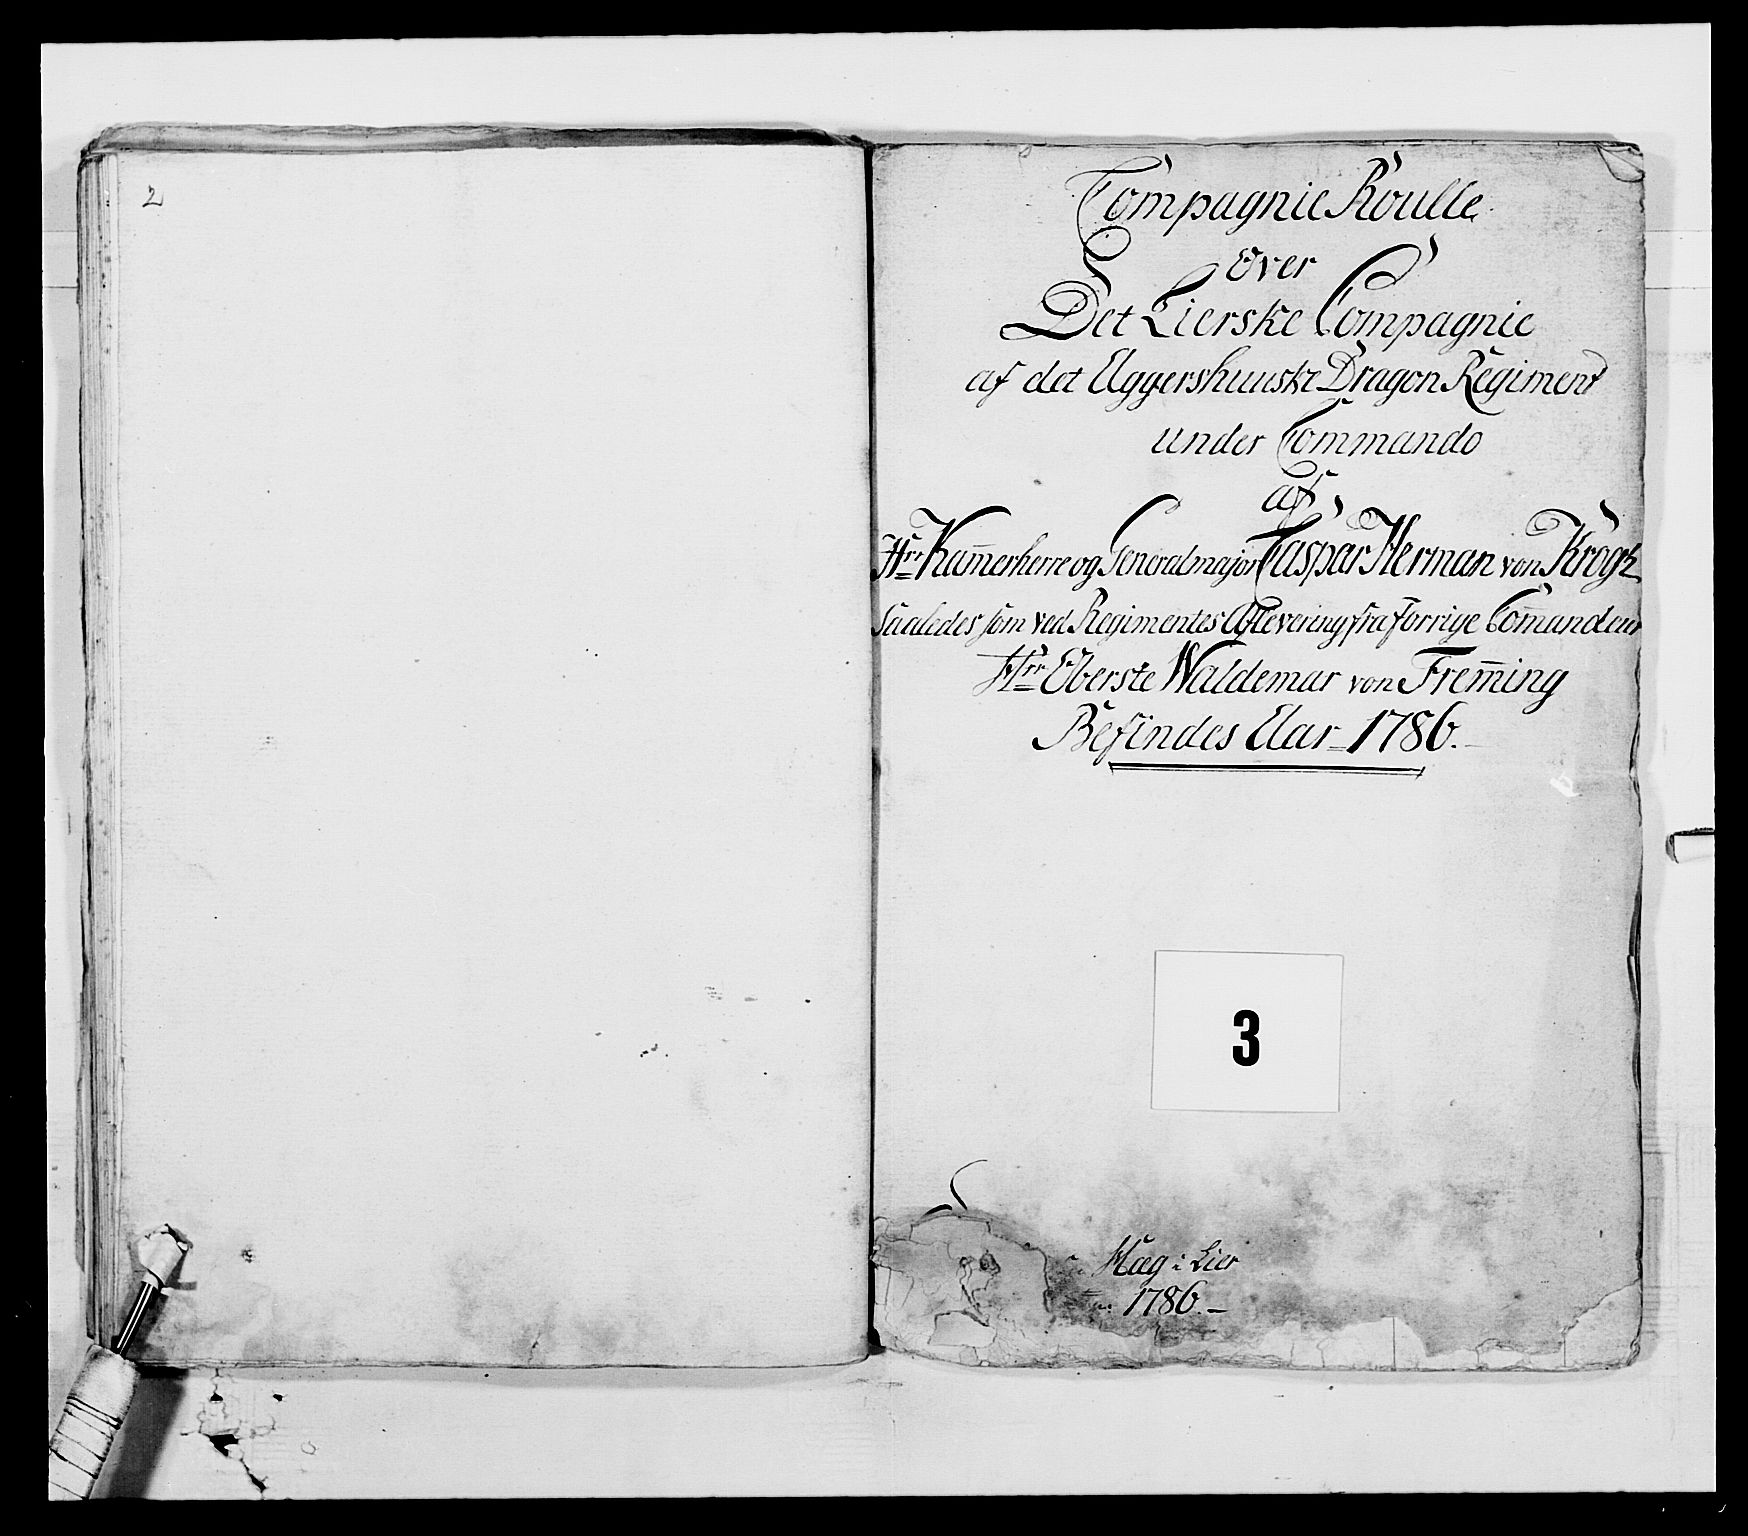 2
Compagnie Roulle
over
Det Lierske Compagnie
af det Aggershuuske Dragon Regiment
under Commando
af
Hrr Kam̄erherre og Generalmajor Caspar Herman von Krogh
Saaledes som ved Regimentes Aflevering fra forrige Com̄andeur
Hrr Oberste Waldemar von Frem̄ing
Befindes Aar 1786.
3
Hæg i Lier
1786.